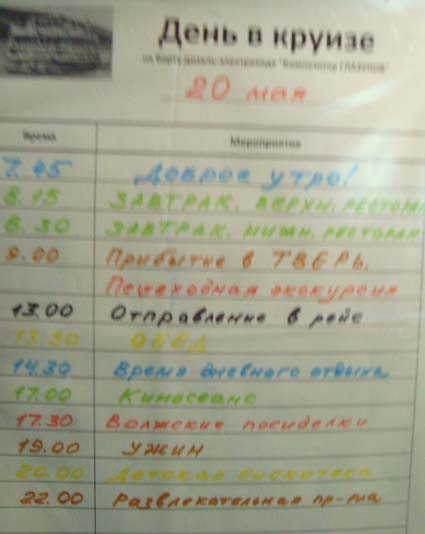 День в круизе
на борту дизель-электрохода "Композитор ГЛАЗУНОВ"
20 мая
Время Мероприятия
7.45 Доброе утро!
8.15 ЗАВТРАК. ВЕРХН. РЕСТОРАН
8.30 ЗАВТРАК. НИЖН. РЕСТОРАН
9.00 Прибытие в ТВЕРЬ.
Пешеходная экскурсия
13.00 Отправление в рейс
13.30 ОБЕД
14.30 Время дневного отдыха
17.00 Киносеанс
17.30 Волжские посиделки
19.00 УЖИН
20.00 Детская дискотека
22.00 Развлекательная пр-ма